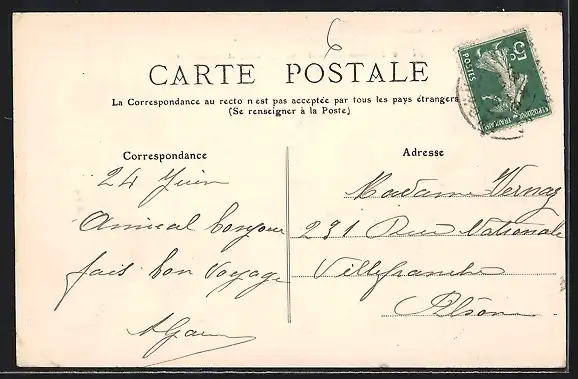 6
CARTE POSTALE
La Correspondance au recto n'est pas acceptée par tous les pays étrangers
(Se renseigner à la Poste)
5c
POSTES
REPUBLIQUE FRANÇAISE
Correspondance
24 Juin
Amical bonjour
fais bon voyage
Adresse
Madame Vernay
231 Rue Nationale
Villefranche
Rhône